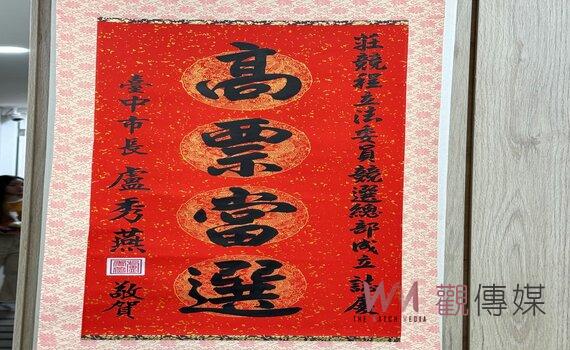 莊競程立法委員競選總部成立誌慶
高票當選
臺中市長 盧秀燕 敬賀
觀傳媒
THE WATCH MEDIA